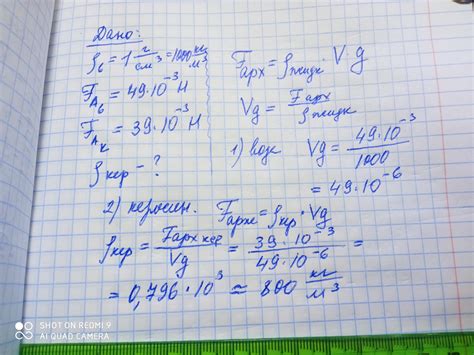 Дано:
ρв = 1 г/см³ = 1000 кг/м³
FAв = 49·10⁻³ Н
FAк = 39·10⁻³ Н
ρкер - ?
Fарх = ρжидк · V·g
Vg = Fарх/ρжидк
1) воде Vg = 49·10⁻³/1000
= 49·10⁻⁶
2) керосин. Fарх = ρкр · Vg
ρкер = Fарх кер/Vg = 39·10⁻³/49·10⁻⁶ =
= 0,796·10³ ≈ 800 кг/м³
SHOT ON REDMI 9
AI QUAD CAMERA